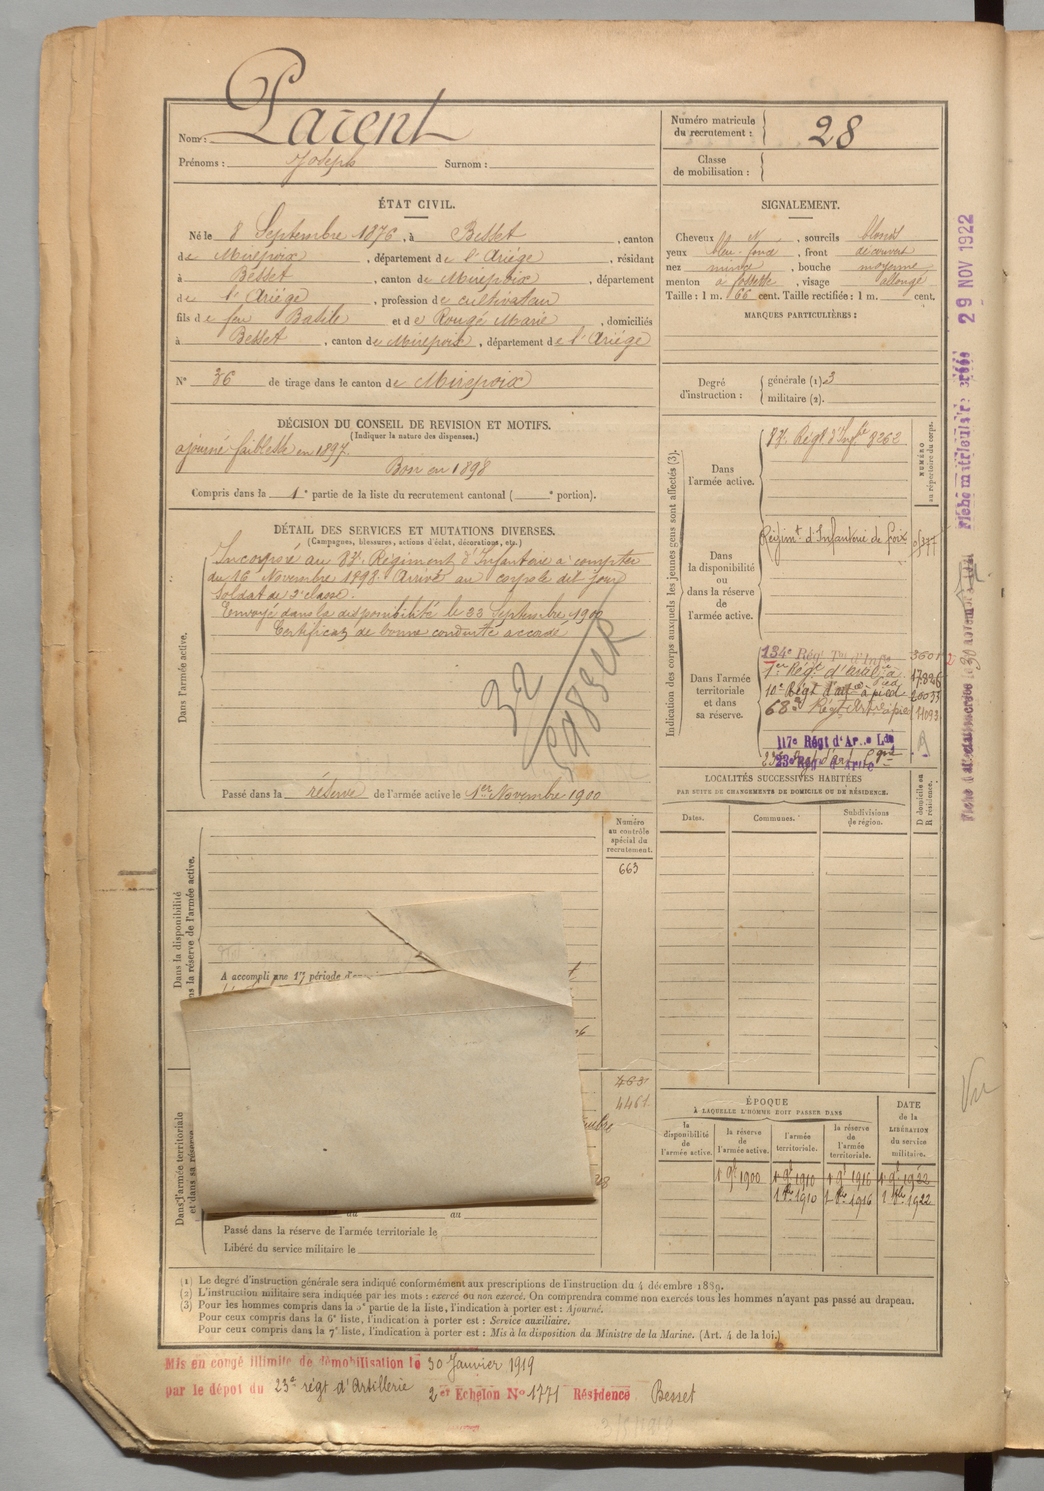 Nom : Parent
Prénoms : Joseph Surnom :
Numéro matricule du recrutement : 28
Classe de mobilisation :
ÉTAT CIVIL.
Né le 8 Septembre 1876, à Besset, canton
de Mirepoix, département de l'Ariége, résidant
à Besset, canton de Mirepoix, département
de l'Ariége, profession de cultivateur
fils de feu Basile et de Rougé Marie, domiciliés
à Besset, canton de Mirepoix, département de l'Ariége
N° 36 de tirage dans le canton de Mirepoix
SIGNALEMENT.
Cheveux bl N, sourcils blonds
yeux bleu-foncé, front découvert
nez, bouche moyenne
menton à fossette, visage allongé
Taille : 1 m. 66 cent. Taille rectifiée : 1 m. cent.
MARQUES PARTICULIÈRES :
Degré d'instruction : générale (1) 3
militaire (2).
DÉCISION DU CONSEIL DE REVISION ET MOTIFS.
(Indiquer la nature des dispenses.)
ajourné faiblesse en 1897.
Bon en 1898
Compris dans la 1e partie de la liste du recrutement cantonal ( e portion).
DÉTAIL DES SERVICES ET MUTATIONS DIVERSES.
(Campagnes, blessures, actions d'éclat, décorations, etc.)
Dans l'armée active.
Incorporé au 87e Régiment d'Infanterie à compter
du 16 Novembre 1898. Arrivé au corps le dit jour
Soldat de 2e classe.
Envoyé dans la disponibilité le 22 Septembre 1900
Certificat de bonne conduite accordé
32
Passé dans la réserve de l'armée active le 1er Novembre 1900
Indication des corps auxquels les jeunes gens sont affectés (3).
NUMÉRO au répertoire du corps.
Dans l'armée active.
87e Régt d'Infie 8262
Dans la disponibilité ou dans la réserve de l'armée active.
Régimt d'Infanterie de Foix
Dans l'armée territoriale et dans sa réserve.
134e Régt Tal d'Infie
10e Régt d'art à pied
68e Régt d'Art à pied
117e Régt d'Arie Lde
23e Régt d'Artie
LOCALITÉS SUCCESSIVES HABITÉES
PAR SUITE DE CHANGEMENTS DE DOMICILE OU DE RÉSIDENCE.
D domicile ou R résidence.
Dates. Communes. Subdivisions de région.
Dans la disponibilité
la réserve de l'armée active.
Numéro au contrôle spécial du recrutement.
663
A accompli une 1e période
463
4461
Dans l'armée territoriale et dans sa réserve
au
Passé dans la réserve de l'armée territoriale le
Libéré du service militaire le
ÉPOQUE
À LAQUELLE L'HOMME DOIT PASSER DANS
DATE de la LIBÉRATION du service militaire.
la disponibilité de l'armée active. la réserve de l'armée active. l'armée territoriale. la réserve de l'armée territoriale.
1 9e 1900 1 9e 1910 1 9e 1916 1 9e 1922
1 1910 1 1916 1 1922
(1) Le degré d'instruction générale sera indiqué conformément aux prescriptions de l'instruction du 4 décembre 1889.
(2) L'instruction militaire sera indiquée par les mots : exercé ou non exercé. On comprendra comme non exercés tous les hommes n'ayant pas passé au drapeau.
(3) Pour les hommes compris dans la 5e partie de la liste, l'indication à porter est : Ajourné.
Pour ceux compris dans la 6e liste, l'indication à porter est : Service auxiliaire.
Pour ceux compris dans la 7e liste, l'indication à porter est : Mis à la disposition du Ministre de la Marine. (Art. 4 de la loi.)
Mis en congé illimité de démobilisation le 30 Janvier 1919
par le dépôt du 23e régt d'Artillerie 2er Echelon No 1771 Résidence Besset
Fiche matriculaire créée 29 NOV 1922
Vu